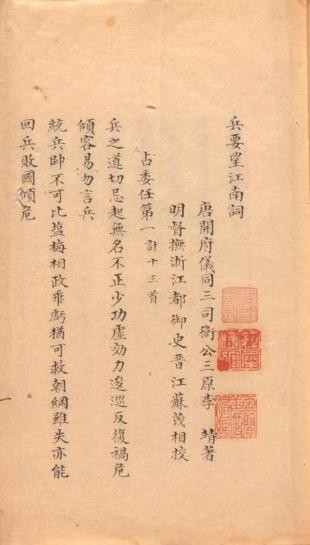 兵要望江南詞
唐開府儀同三司衛公三原李 靖著
明督撫浙江都御史晋江蘇茂相校
占委任第一計十三首
兵之道切忌起無名不正少功虛効力逡巡反復禍危
傾容易勿言兵
統兵帥不可比塩梅相政乖虧猶可救朝綱雖失亦能
回兵敗國傾危